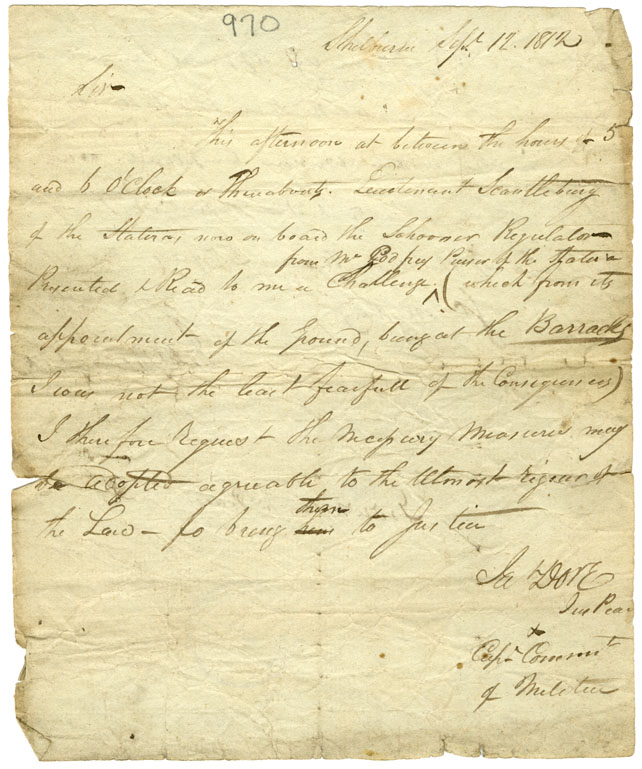 970
Shelburne Sepr. 12. 1812
Sir
This afternoon at between the hours of 5
and 6 O'Clock or thereabouts. Lieutenant Scantlebury
of the Statira, now on board the Schooner Regulator
from Mr. Godfrey Purser of the Statira
Presented & Read to me a Challenge, ^ (which from its
appointment of the Ground, being at the Barracks
I was not the least fearfull of the Consequences)
I therefore Request the Necessary Measures may
be adopted agreeable to the Utmost rigour of
the Law – to bring them to Justice
DOTE
Jus Peac
&
Capn. Commt
of Militia